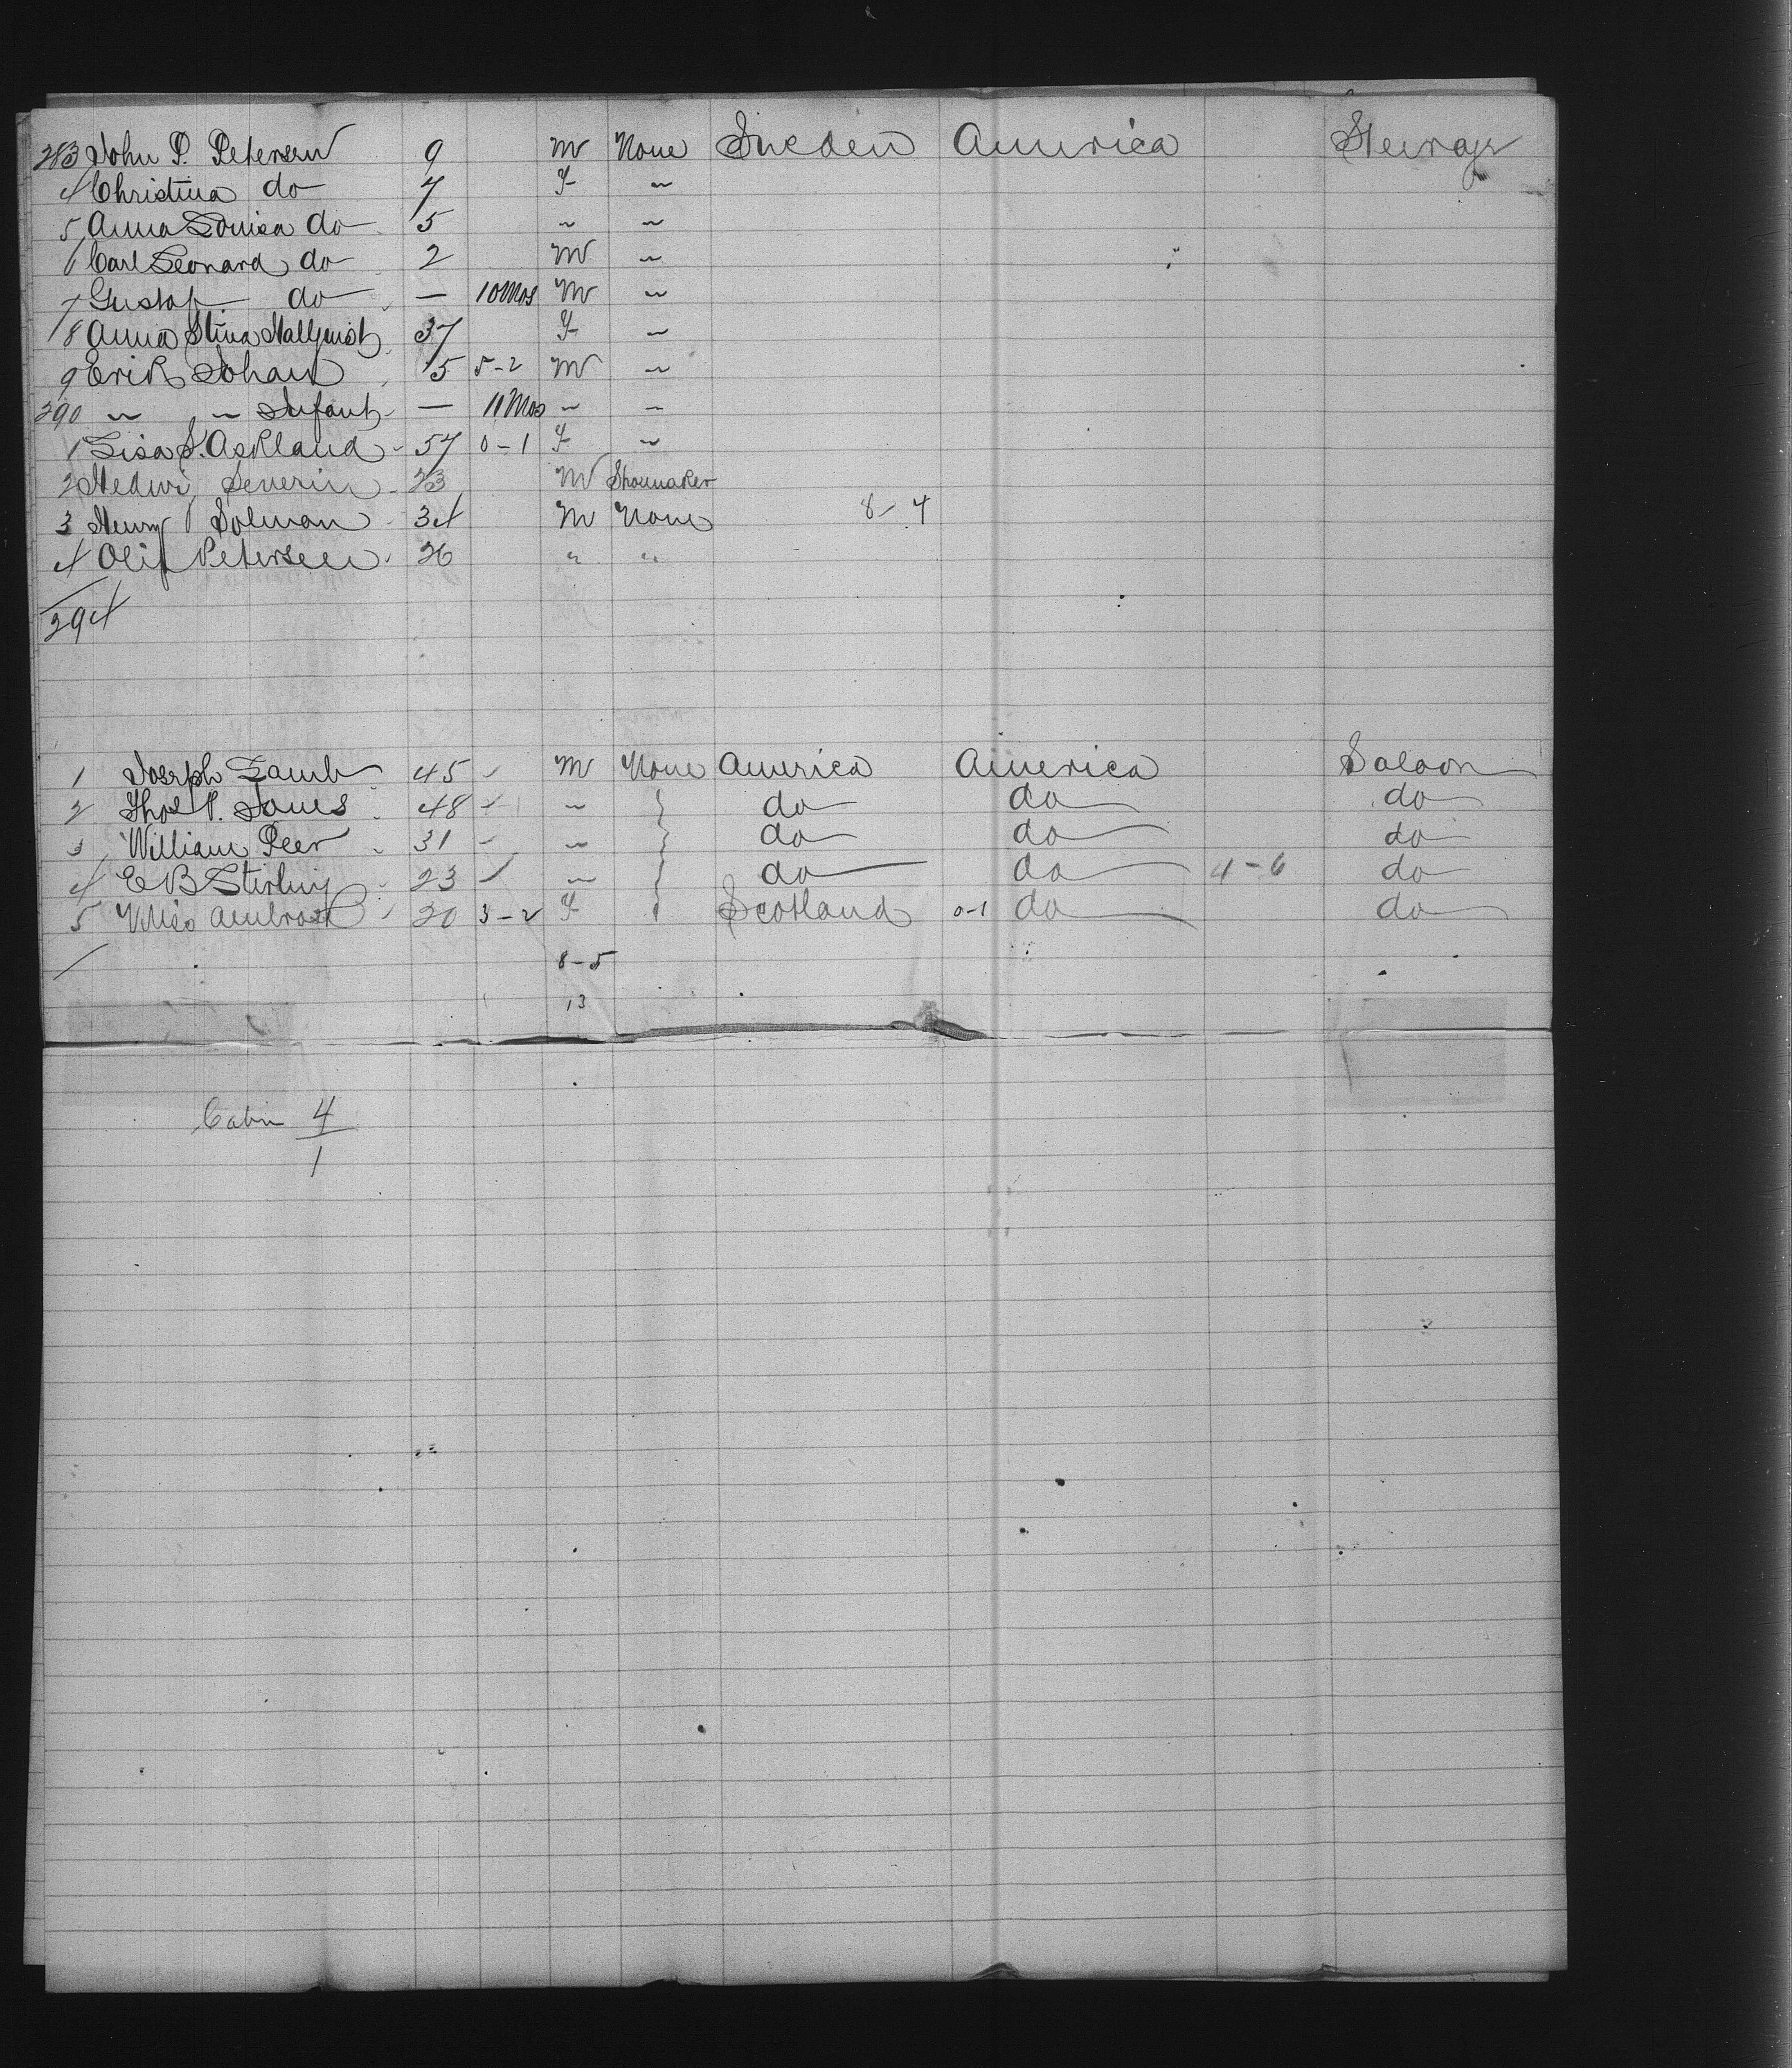 283 John P. Petersen 9 M None Sweden America Steerage
4 Christina do 7 F "
5 Anna Louisa do 5 " "
6 Carl Leonard do 2 M "
7 Gustaf do — 10 Mos M "
8 Anna Stina Hallquist 37 F "
9 Erik Johan 5 5-2 M "
290 " " Infant — 11 Mos " "
1 Lisa S. Askland 57 0-1 F "
2 Severin 23 M Shoemaker
3 Henry Solman 34 M None 8-4
4 Olif Petersen 26 " "
294
1 Joseph Lamb 45 M None America America Saloon
2 Thos P. Jones 48 " do do do
3 William Peer 31 " do do do
4 E B Stirling 23 " do do 4-6 do
5 Miss Ambrose 20 3-2 F Scotland 0-1 do do
8-5
13
Cabin 4
1